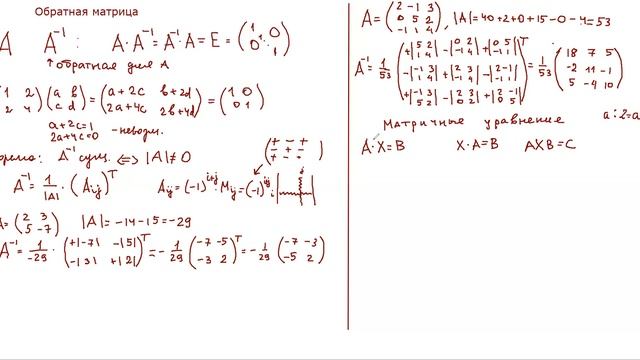 Обратная матрица
A A⁻¹ : A·A⁻¹=A⁻¹·A=E= (1 0 / 0 ⋱ 1)
↑ обратная для A
1 2 / 2 4) (a b / c d) = (a+2c b+2d / 2a+4c 2b+4d) = (1 0 / 0 1)
a+2c=1
2a+4c=0 - невозм.
орема: A⁻¹ сущ. ⟺ |A|≠0
(+ - + / - + - / + - +)
A⁻¹ = 1/|A| · (Aij)ᵀ Aij=(-1)^(i+j)·Mij=(-1)^(ij)
i j
A= (2 3 / 5 -7) |A|=-14-15=-29
A⁻¹= 1/-29 · (+|-7| -|5| / -|3| +|2|)ᵀ = - 1/29 (-7 -5 / -3 2)ᵀ = - 1/29 (-7 -3 / -5 2)
A= (2 -1 3 / 0 5 2 / -1 1 4) , |A|=40+2+0+15-0-4=53
A⁻¹= 1/53 (+|5 2 / 1 4| -|0 2 / -1 4| +|0 5 / -1 1| / -|-1 3 / 1 4| +|2 3 / -1 4| -|2 -1 / -1 1| / +|-1 3 / 5 2| -|2 3 / 0 2| +|2 -1 / 0 5|)ᵀ = 1/53 (18 7 5 / -2 11 -1 / 5 -4 10)
Матричные уравнение a:2=a
A·X=B X·A=B AXB=C